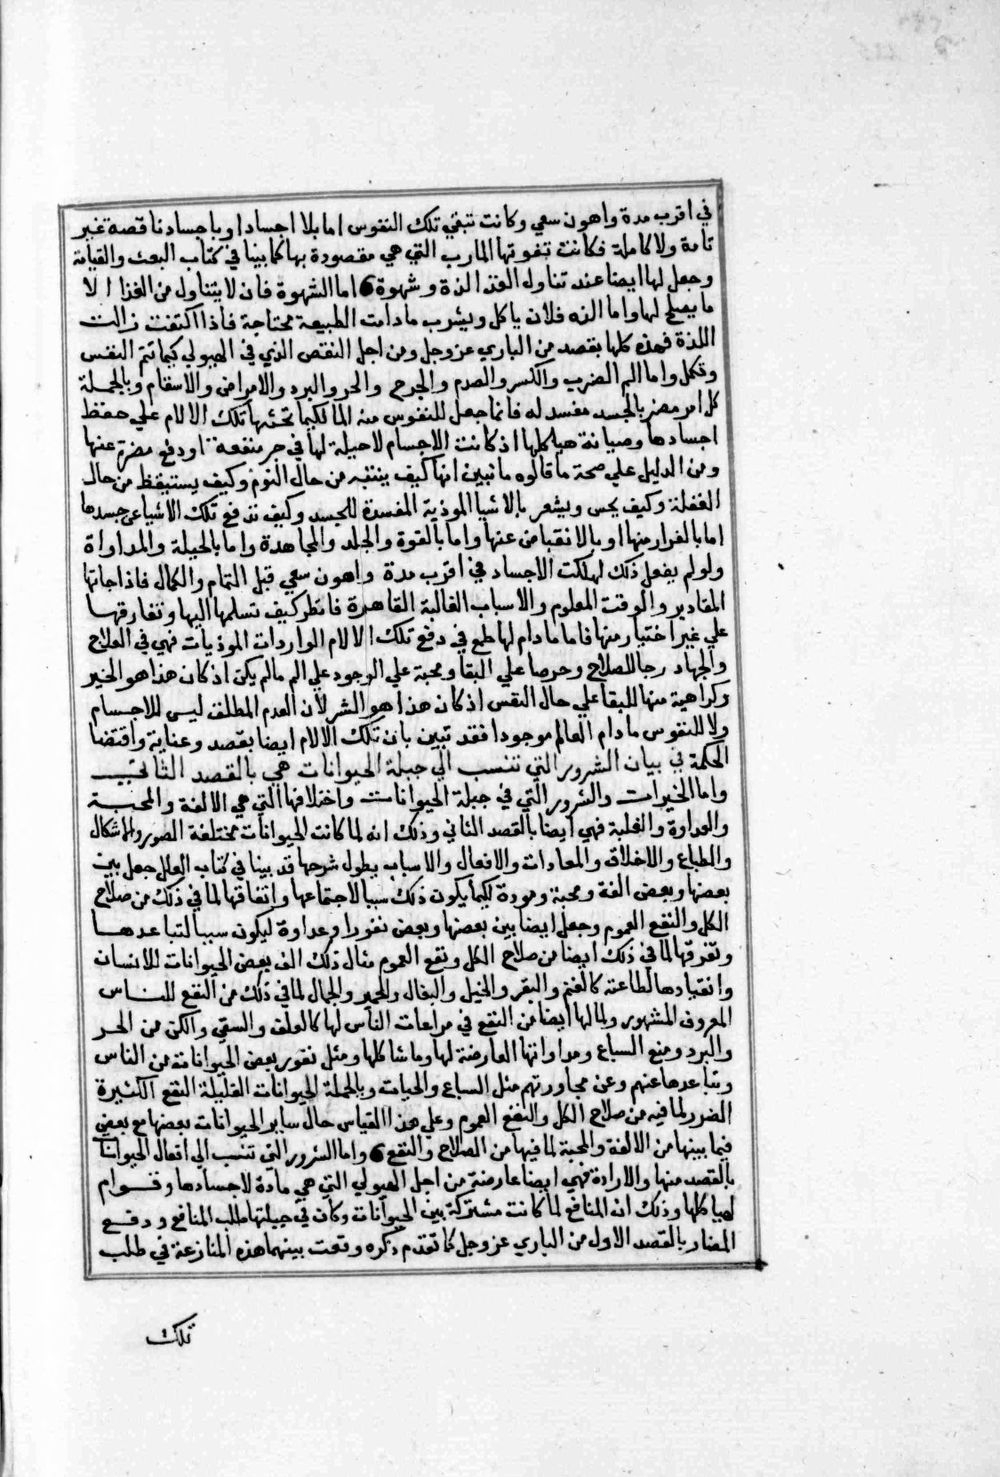 في اقرب مدة واهون سعي وكانت تبقي تلك النفوس اما بلا اجسادا وباجساد ناقصة غير
تامة ولا كاملة فكانت تفوتها المارب التي هي مقصودة بها كما بينا في كتاب البعث والقيامة
وجعل لها ايضا عند تناول الغذا لذة وشهوة اما الشهوة فان لا يتناول من الغذا الا
ما يصلح لها واما الذه فلان ياكل ويشرب ما دامت الطبيعة محتاجة فاذا اكتفت زالت
اللذة فهذه كلها بقصد من الباري عز وجل ومن اجل النقص الذي في الهيولي كيما تتم النفس
وتكمل واما الم الضرب والكسر والصدم والجرح والحر والبرد والامراض والاسقام وبالجملة
كل امر مضر بالجسد مفسد له فانما جعل للنفوس منه الما لكيما تحثها تلك الالام علي حفظ
اجسادها وصيانة هياكلها اذ كانت الاجسام لا حيلة لها في جر منفعة او دفع مضرة عنها
ومن الدليل علي صحة ما قالوه ما نبين انها كيف ينتبه من حال النوم وكيف يستيقظ من حال
الغفلة وكيف يحس ويشعر بالاشيا الموذية المفسدة للجسد وكيف تدفع تلك الاشيا عن جسدها
اما بالفرار منها او بالانقباض عنها واما بالقوة والجلد والمجاهدة واما بالحيلة والمداراة
ولو لم يفعل ذلك لهلكت الاجساد في اقرب مدة واهون سعي قبل التمام والكمال فاذا جاتها
المقادير والوقت المعلوم والاسباب الغالبة القاهرة فانظر كيف تسلمها اليها وتفارقها
علي غير اختيار منها فاما ما دام لها طمع في دفع تلك الالام الواردات الموذيات فهي في العلاج
والجهاد رجا للصلاح وحرصا علي البقا ومحبة علي الوجود علي الم ما لم يكن اذ كان هذا هو الخير
وكراهية منها للبقا علي حال النقس اذ كان هذا هو الشر لان العدم المطلق ليس للاجسام
ولا للنفوس ما دام العالم موجودا فقد تبين بان تلك الالام ايضا بقصد وعناية واقتضا
الحكمة في بيان الشرور التي تنسب الي جبلة الحيوانات هي بالقصد الثاني
واما الخيرات والشرور التي في جبلة الحيوانات واختلافها التي هي الالفة والمحبة
والعداوة والغلبة فهي ايضا بالقصد الثاني وذلك انه لما كانت الحيوانات مختلفة الصور والاشكال
والطباع والاخلاق والعادات والافعال والاسباب يطول شرحها قد بينا في كتاب العلل جعل بين
بعضها وبعض الفة ومحبة ومودة لكيما يكون ذلك سببا لاجتماعها واتفاقها لما في ذلك من صلاح
الكل والنفع العموم وجعل ايضا بين بعضها وبعض نفورا وعداوة ليكون سببا لتباعدها
وتفرقها لما في ذلك ايضا من صلاح الكل ونفع العموم مثال ذلك الف بعض الحيوانات للانسان
وانقيادها لطاعته كالغنم والبقر والخيل والبغال والحمير والجمال لما في ذلك من النفع للناس
المعروف المشهور ولما لها ايضا من النفع في مراعات الناس لها كالعلف والسقي والكن من الحر
والبرد ومنع السباع ومداواتها العارضة لها وما شاكلها ومثل نفور بعض الحيوانات من الناس
وتباعدها عنهم وعن مجاورتهم مثل السباع والحيات وبالجملة الحيوانات القليلة النفع الكثيرة
الضرر لما فيه من صلاح الكل والنفع العموم وعلي هذا القياس حال ساير الحيوانات بعضها مع بعض
فيما بينها من الالفة والمحبة لما فيها من الصلاح والنفع واما الشرور التي تنسب الي افعال الحيوانات
بالقصد منها والارادة فهي ايضا عارضة من اجل الهيولي التي هي مادة لاجسادها وقوام
لهياكلها وذلك ان المنافع لما كانت مشتركة بين الحيوانات وكان في جبلتها طلب المنافع ودفع
المضار بالقصد الاول من الباري عز وجل كما تقدم ذكره وقعت بينهما هذه المنازعة في طلب
تلك